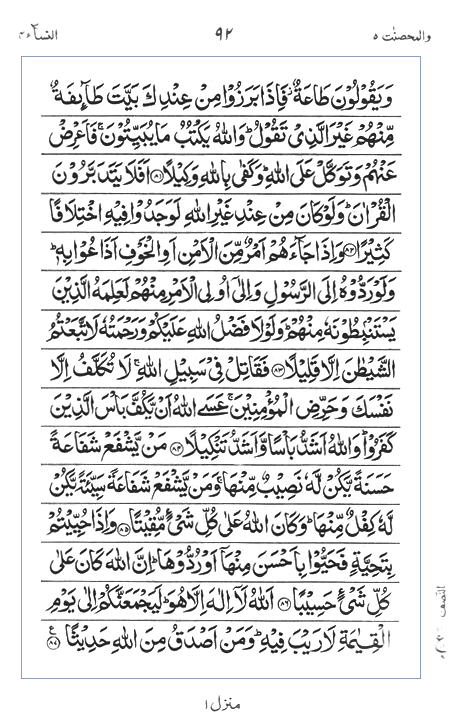 والمحصنت ٥ ٩٢ النسآء ٤
وَيَقُوْلُوْنَ طَاعَةٌ ۫ فَاِذَا بَرَزُوْا مِنْ عِنْدِكَ بَيَّتَ طَآئِفَةٌ
مِّنْهُمْ غَيْرَ الَّذِىْ تَقُوْلُ ؕ وَاللّٰهُ يَكْتُبُ مَا يُبَيِّتُوْنَ ۚ فَاَعْرِضْ
عَنْهُمْ وَتَوَكَّلْ عَلَى اللّٰهِ ؕ وَكَفٰى بِاللّٰهِ وَكِيْلًا ﴿٨١﴾ اَفَلَا يَتَدَبَّرُوْنَ
الْقُرْاٰنَ ؕ وَلَوْ كَانَ مِنْ عِنْدِ غَيْرِ اللّٰهِ لَوَجَدُوْا فِيْهِ اخْتِلَافًا
كَثِيْرًا ﴿٨٢﴾ وَاِذَا جَآءَهُمْ اَمْرٌ مِّنَ الْاَمْنِ اَوِ الْخَوْفِ اَذَاعُوْا بِهٖ ؕ
وَلَوْ رَدُّوْهُ اِلَى الرَّسُوْلِ وَاِلٰٓى اُولِى الْاَمْرِ مِنْهُمْ لَعَلِمَهُ الَّذِيْنَ
يَسْتَنْۢبِطُوْنَهٗ مِنْهُمْ ؕ وَلَوْلَا فَضْلُ اللّٰهِ عَلَيْكُمْ وَرَحْمَتُهٗ لَاتَّبَعْتُمُ
الشَّيْطٰنَ اِلَّا قَلِيْلًا ﴿٨٣﴾ فَقَاتِلْ فِىْ سَبِيْلِ اللّٰهِ ۚ لَا تُكَلَّفُ اِلَّا
نَفْسَكَ وَحَرِّضِ الْمُؤْمِنِيْنَ ۚ عَسَى اللّٰهُ اَنْ يَّكُفَّ بَاْسَ الَّذِيْنَ
كَفَرُوْا ؕ وَاللّٰهُ اَشَدُّ بَاْسًا وَّاَشَدُّ تَنْكِيْلًا ﴿٨٤﴾ مَنْ يَّشْفَعْ شَفَاعَةً
حَسَنَةً يَّكُنْ لَّهٗ نَصِيْبٌ مِّنْهَا ۚ وَمَنْ يَّشْفَعْ شَفَاعَةً سَيِّئَةً يَّكُنْ
لَّهٗ كِفْلٌ مِّنْهَا ؕ وَكَانَ اللّٰهُ عَلٰى كُلِّ شَىْءٍ مُّقِيْتًا ﴿٨٥﴾ وَاِذَا حُيِّيْتُمْ
بِتَحِيَّةٍ فَحَيُّوْا بِاَحْسَنَ مِنْهَآ اَوْ رُدُّوْهَا ؕ اِنَّ اللّٰهَ كَانَ عَلٰى
كُلِّ شَىْءٍ حَسِيْبًا ﴿٨٦﴾ اَللّٰهُ لَآ اِلٰهَ اِلَّا هُوَ ؕ لَيَجْمَعَنَّكُمْ اِلٰى يَوْمِ
الْقِيٰمَةِ لَا رَيْبَ فِيْهِ ؕ وَمَنْ اَصْدَقُ مِنَ اللّٰهِ حَدِيْثًا ﴿٨٧﴾ ع
النصف
منزل ١